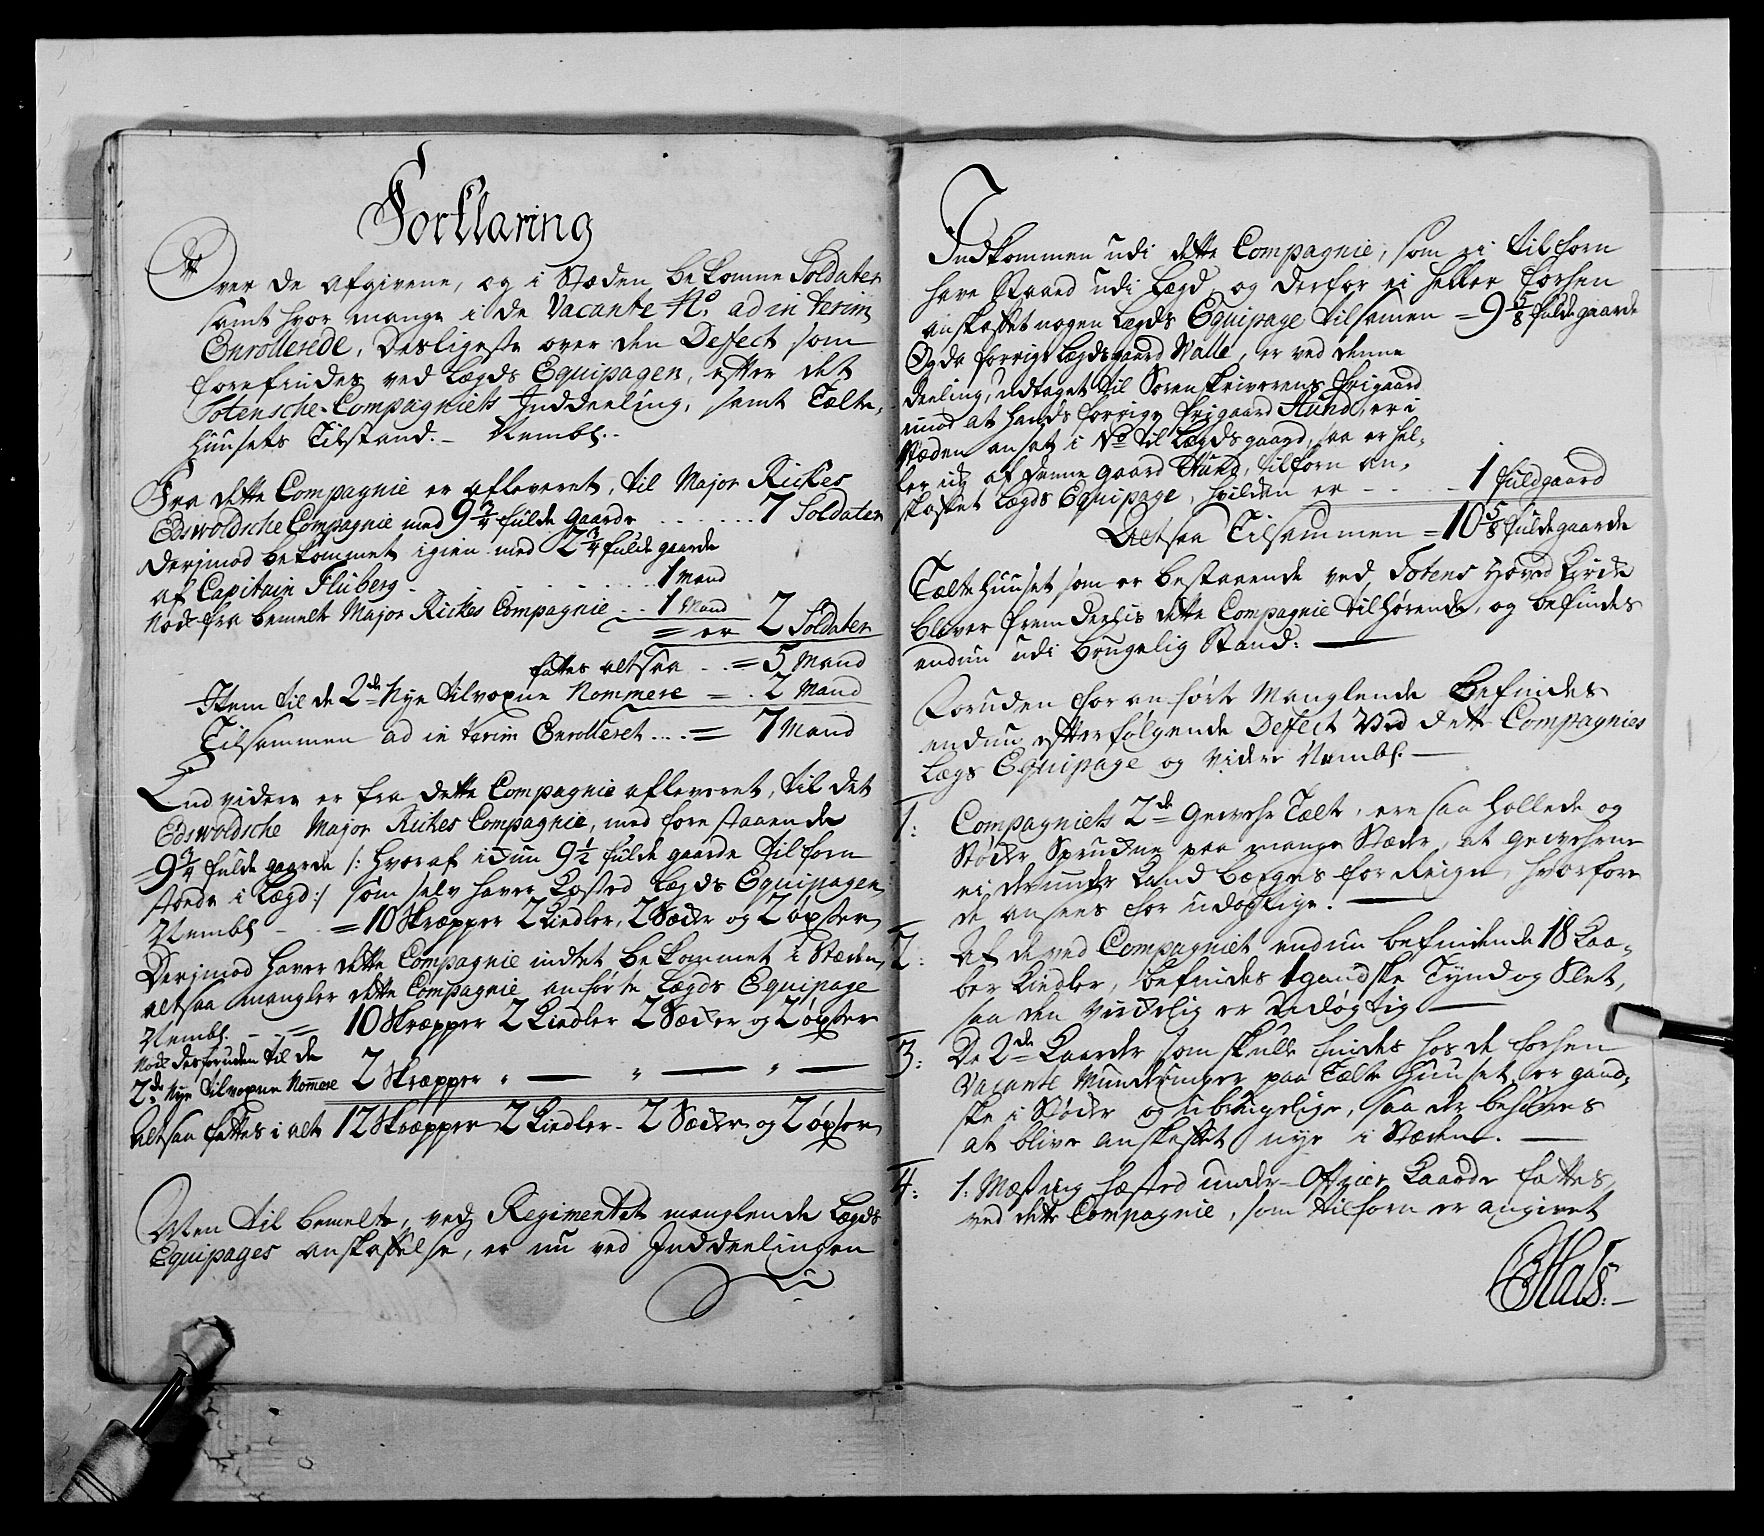 Forklaring
Over de afgivene, og i Stæden bekomne Soldater
samt hvor mange i de Vacante No. ad in terim
Enrollerede, Desligeste over den Defect som
forefindes ved Lægds Equipagen, efter det
Totensche Compagniets Inddeeling, samt Tælte,
Huusets Tilstand. - Nembl. -
Fra dette Compagnie er afleveret, til Major Rickes
Edswoldsche Compagnie med 9 3/4 fulde Gaarde ...... 7 Soldater
Derimod bekommet igien med 2 3/4 fulde gaarde
af Capitain Fluberg - . . . . . . 1 Mand
Nok fra bemelte Major Rickes Compagnie . . 1 Mand
= er 2 Soldater
fattes altsaa . . = 5 Mand
Item til de 2de Nye tilvoxne Nommere = . 2 Mand
Tilsammen ad in terim Enrolleret .... = 7 Mand
End videre er fra dette Compagnie afleveret, til det
Edswoldsche Major Rickes Compagnie, med forestaaende
= 9 3/4 fulde gaarde /: hvoraf ickun 9 1/2 fulde gaarde tilforn
stoede i Lægd :/ som selv haver kosted Lægds Equipagen,
Nembl - . = 10 Skræpper 2 Kiedler, 2 Sæcker og 2 öxser
Derimod haver dette Compagnie indtet bekommet i Stæden,
altsaa mangler dette Compagnie anförte Lægds Equipage
Nembl. - . = 10 Skræpper 2 Kiedler 2 Sæcker og 2 öxser
Nok desforuden til de
2de Nye tilvoxne Nommere 2 Skræpper " — " — " —
Altsaa fattes i alt 12 Skræpper 2 Kiedler - 2 Sæcker og 2 öxser
Men til bemelte, ved Regimentet manglende Lægds
Equipages anskaffelse, er nu ved Inddeelingen
Indkommen udi dette Compagnie, som ei tilforn
have staaed udi Lægd, og derfor ei heller forhen
anskaffet nogen Lægds Equipage tilsamen = 9 5/8 fulde gaarde
Og da forrige Lægdsgaard Walle, er ved denne
deeling, udtaget til Sorenskriverens frigaard
imod at hands forrige frigaard Hund, er i
Stæden ansat i No til Lægds gaard, saa er hel-
ler ey af denne gaard Hund, tilforn an-
skaffet Lægds Equipage, hvilcken er - . . - 1 fuldgaard
Altsaa Tilsammen = 10 5/8 fulde gaarde
Tælte huuset som er bestaaende ved Totens Hoved Kircke
bliver fremdeelis dette Compagnie tilhörende, og befindes
endnu udi brugelig Stand: —
Foruden foranförte Manglende Befindes
endnu efterfolgende Defect Ved dette Compagnies
Lægs Equipage og Videre Nembl. —
1: Compagniets 2de Gewehr Tælt, ere saa hollede og
Stöcke Sprudne paa mange Stæder, at gewehrene
ei derunder kand bærges for Reign, hvorfore
de ansees for udögtige. —
2: Af de ved Compagniet endnu befindende 18 Kaa-
ber Kiedler, befindes 1 gandske Tynd og Slet,
saa den Virckelig er Udögtig —
3: De 2de Kaarder som skulle findes hos de forhen
Vacante Munderinger paa Tælte huuset, er gand-
ske i Stöcker og ubrugelige, saa der behöves
at blive anskaffet nye i Stæden. —
4: 1: Mæssing hæfted under-Officer Kaarde fattes
ved dette Compagnie, som tilforn er angivet
Hals: —